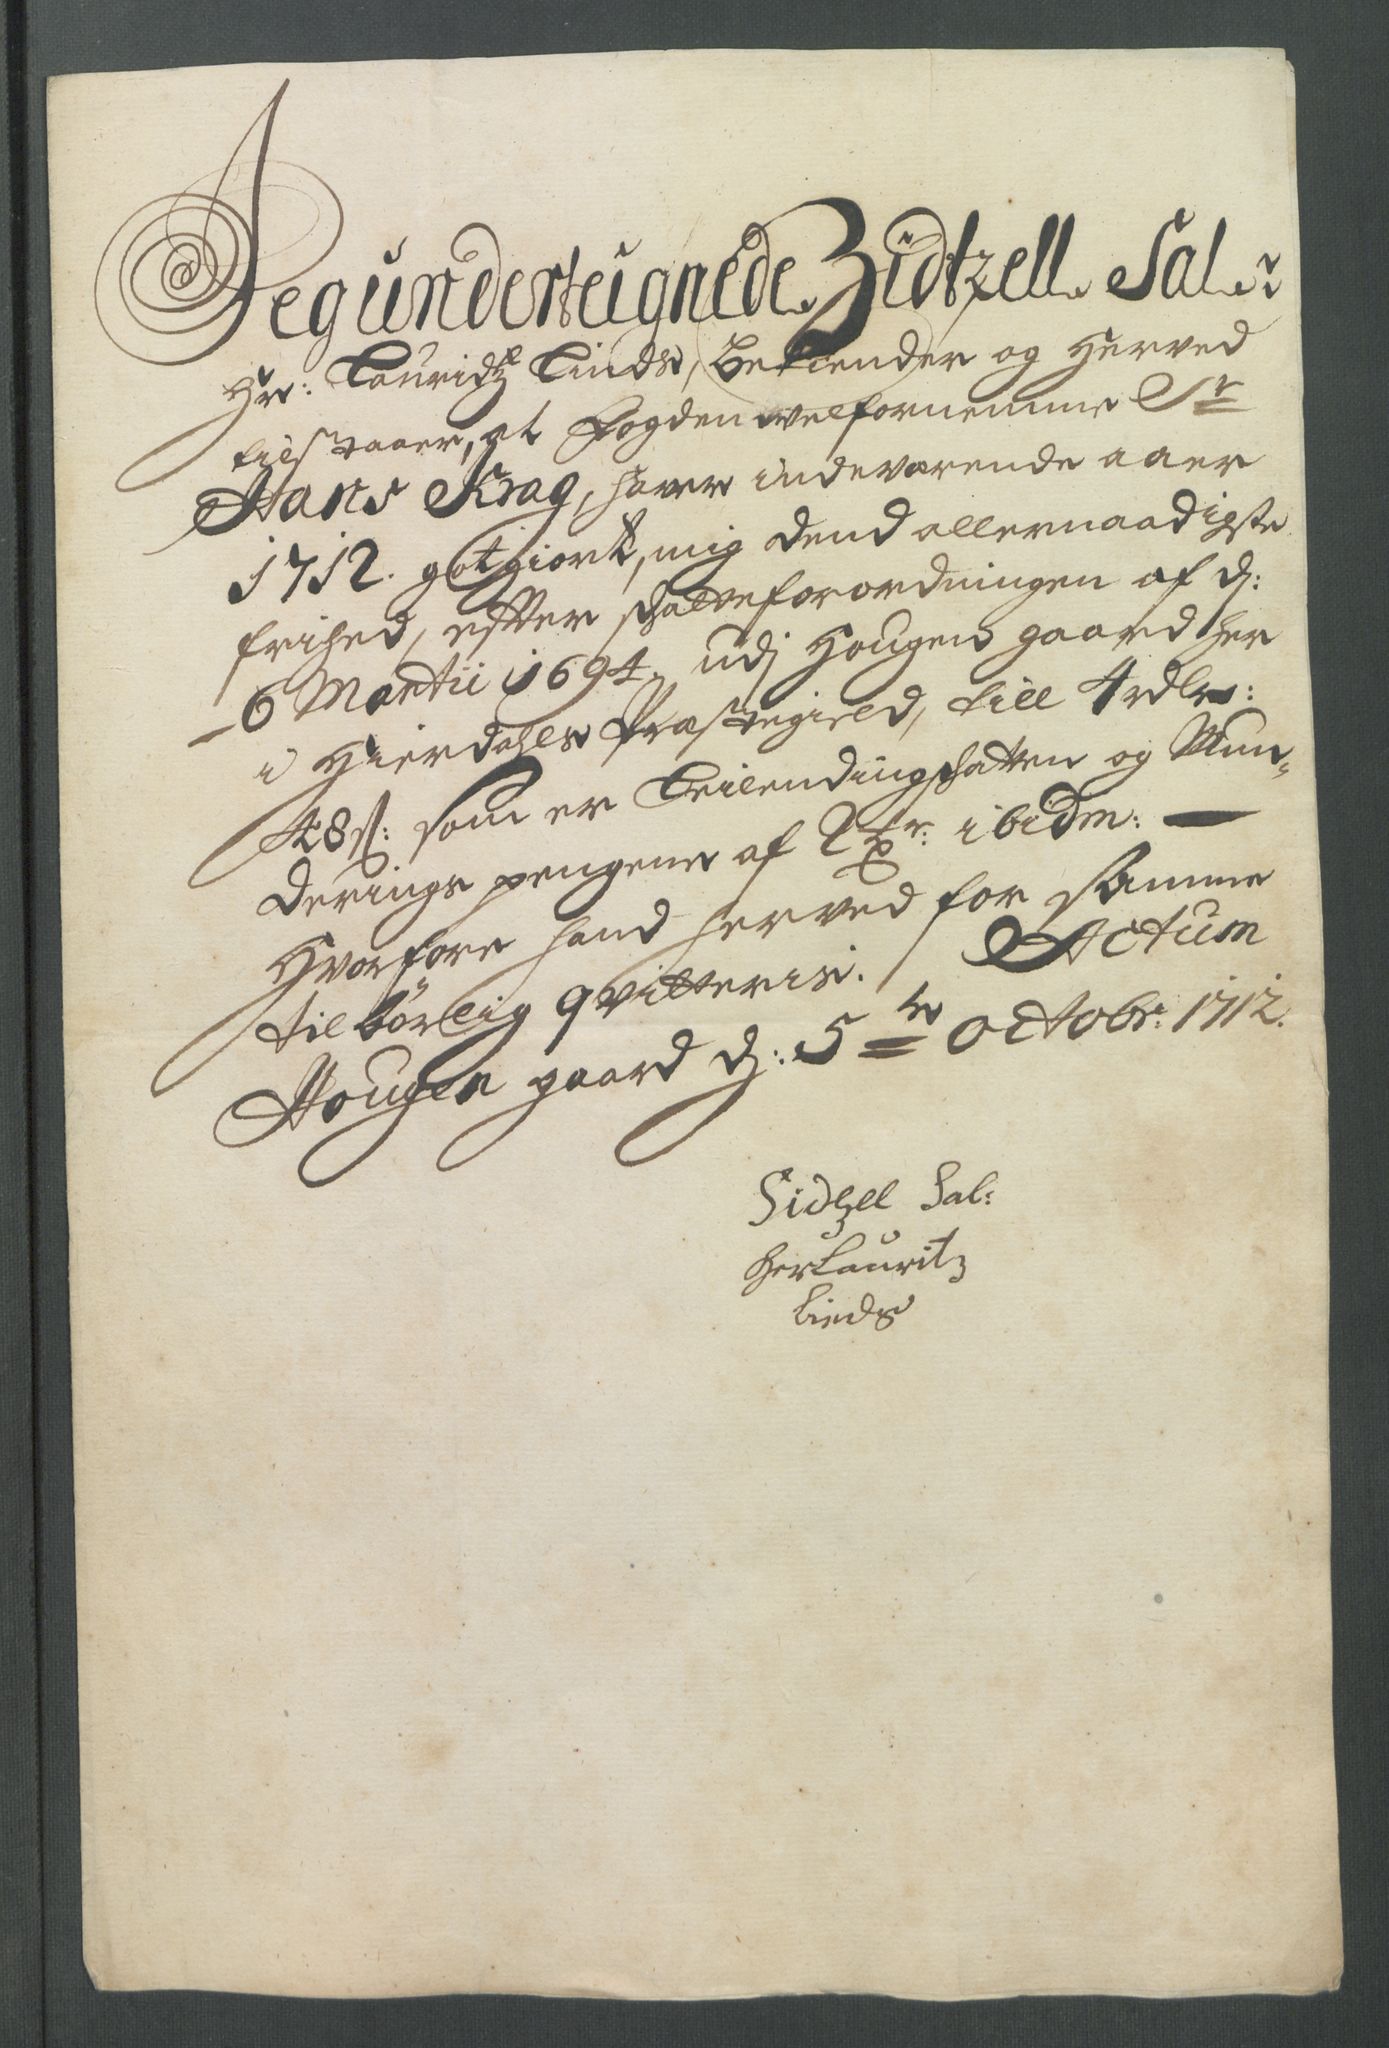 Jeg underteignede Zidtzell Sal:r
Hr: Lauridtz Linds, bekiender og herved
tilstaaer, at Fogden velfornemme Sr
Hans Krag, haver indeværende aaer
1712. gotgiort, mig dend allernaadigste
frihed, efter skatteforordningen af d:
6 Martii 1694. udj Hougen gaard her
i Hierdahls Præstegield, till 4 rdlr:
48 s: som er Leilendingskatten og Mun-
derings pengene af 2 tr. ibidm: —
Hvorfore hand herved for samme
tilbörlig qvitteris. Actum
Hougen gaard d: 5te Octobr: 1712.
Sidtzell Sal:
her Lauritz
Linds